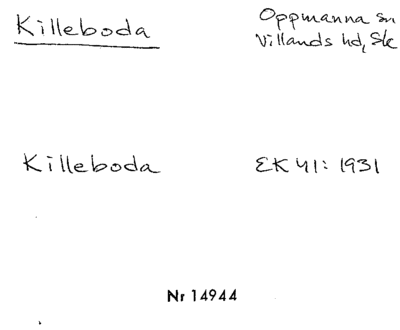 Killeboda
Oppmanna sn
Villands hd, Sk
Killeboda
EK 41: 1931
Nr 14944